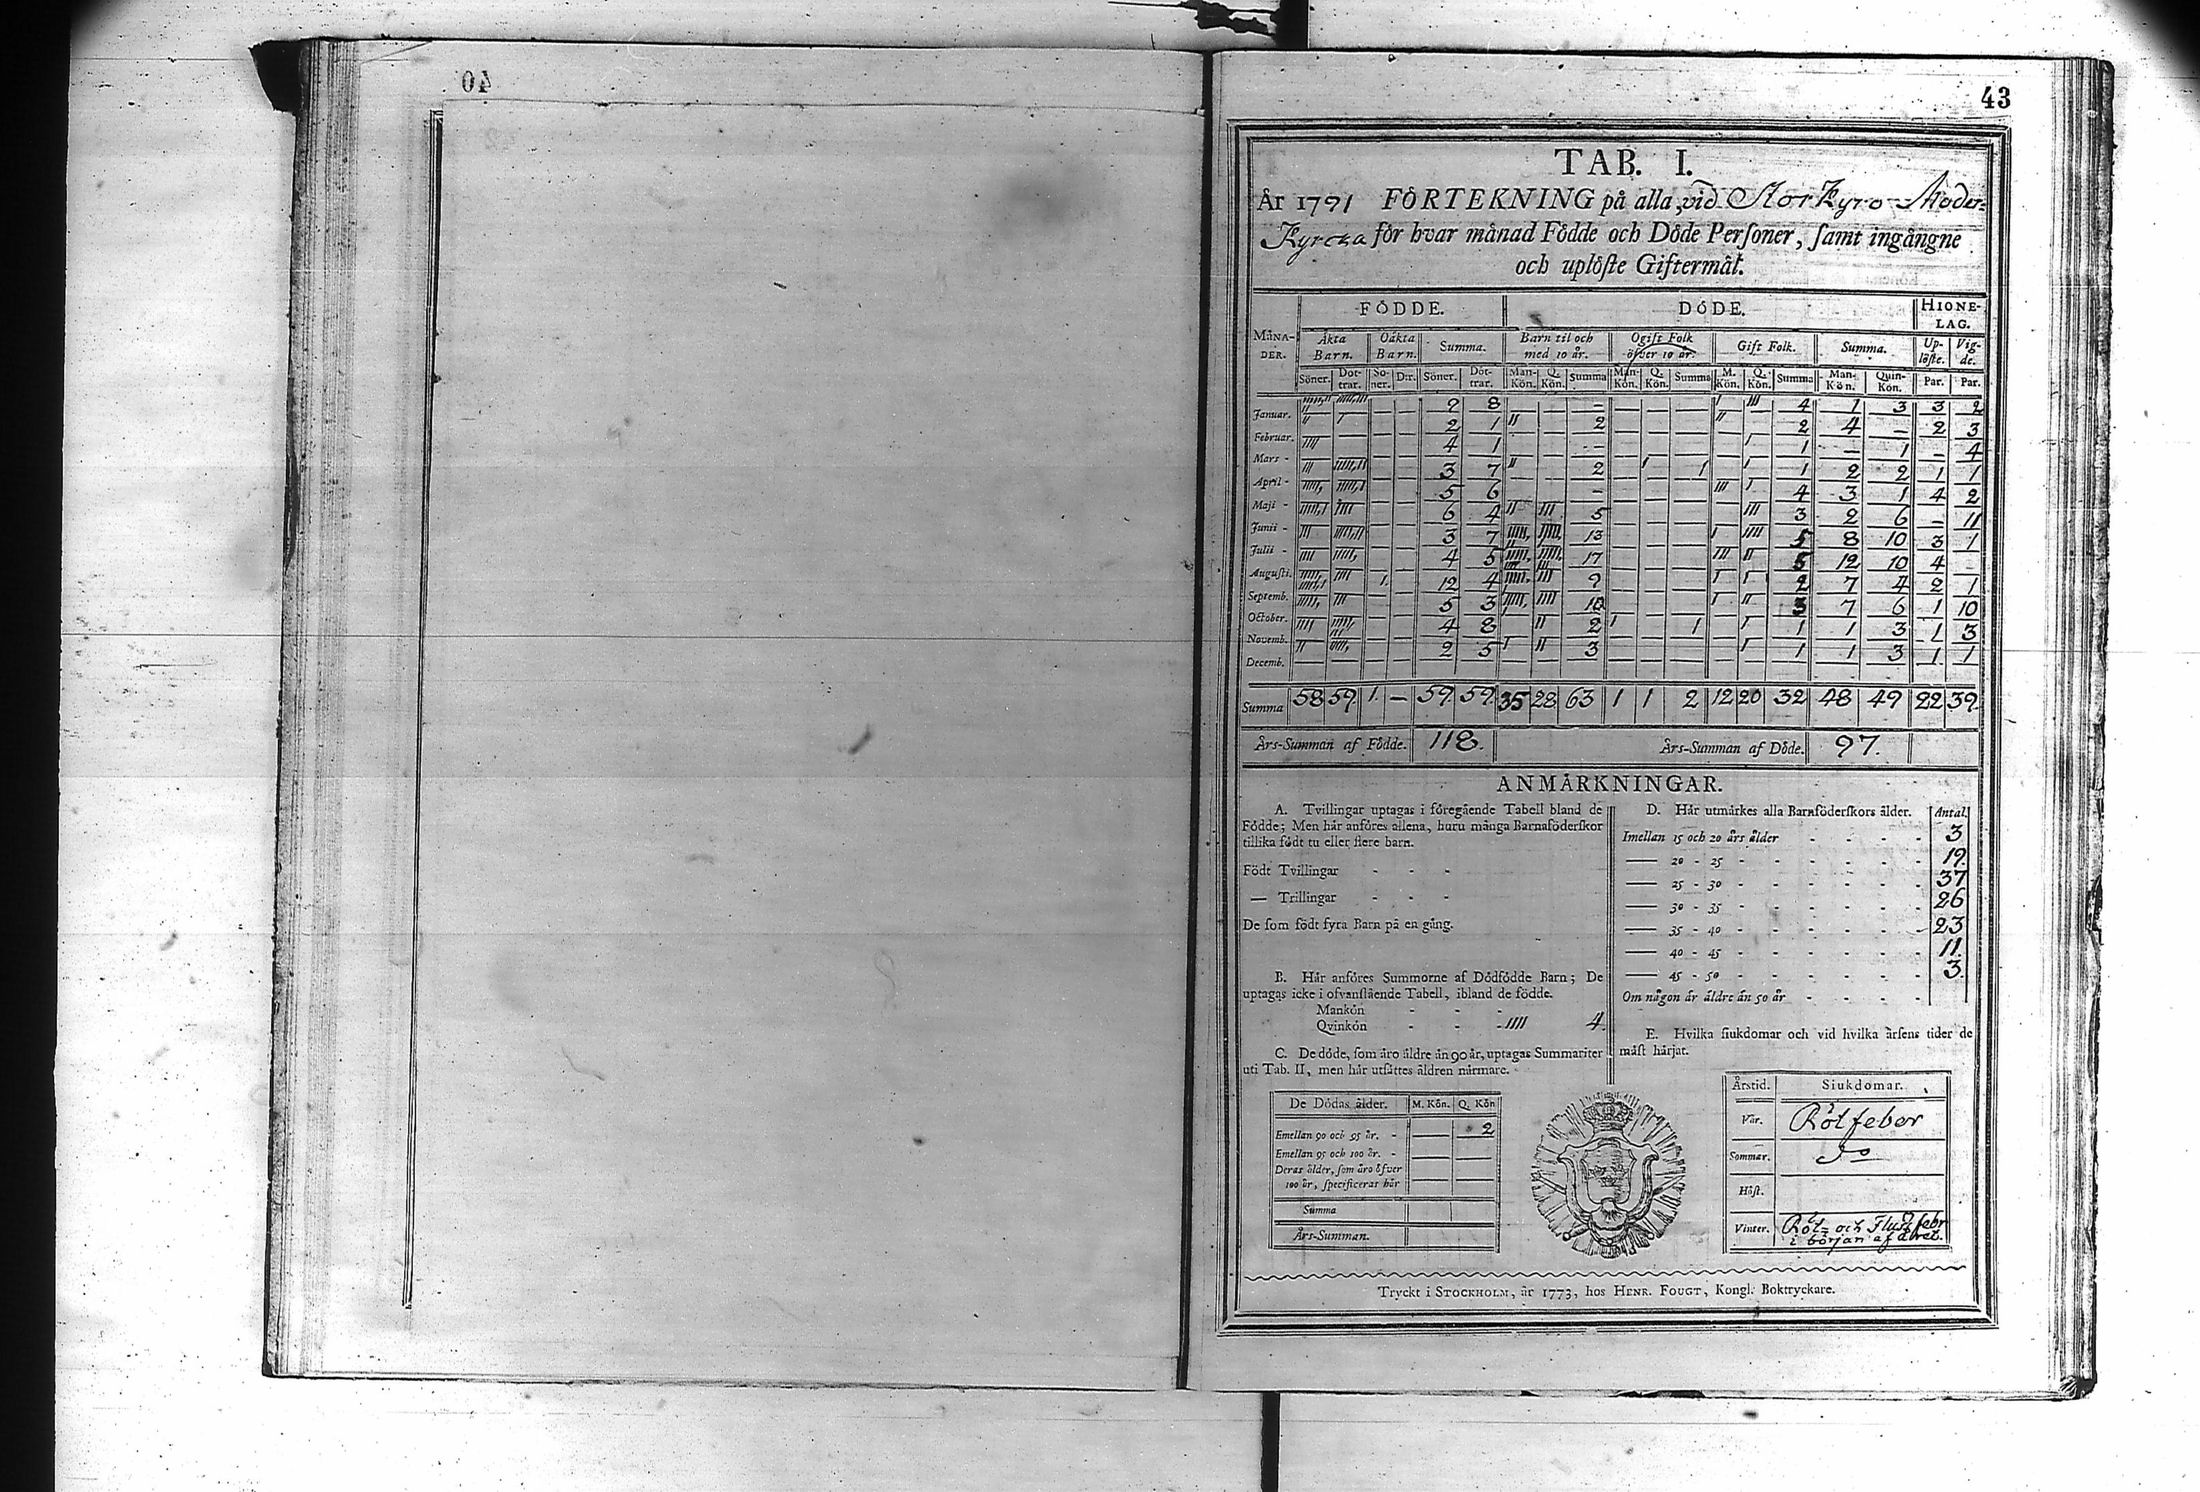 43
TAB. I.
År 1791 FÖRTEKNING på alla, vid Storkyro Moder-
Kyrcka för hvar månad Födde och Döde Personer, samt ingångne
och uplöste Giftermål.
MÅNADER. FÖDDE. DÖDE. HIONELAG.
Äkta Barn. Oäkta Barn. Summa. Barn til och med 10 år. Ogift Folk öfver 10 år. Gift Folk. Summa. Uplöste. Vigde.
Söner. Döttrar. Söner. D:r. Söner. Döttrar. Man-Kön. Q. Kön. Summa Man-Kön. Q. Kön. Summa M. Kön. Q. Kön. Summa Man-Kön. Quin-Kön. Par. Par.
Januar. 9 8 — 4 1 3 3 2
Februar. 2 1 2 2 4 — 2 3
Mars - 4 1 — 1 — 1 — 4
April - 3 7 2 1 1 2 2 1 1
Maji - 5 6 — 4 3 1 4 2
Junii - 6 4 5 3 2 6 — 11
Julii - 3 7 13 5 8 10 3 1
Augusti. 4 5 17 5 12 10 4 —
Septemb. 12 4 9 2 7 4 2 1
October. 5 3 10 3 7 6 1 10
Novemb. 4 8 2 1 1 1 3 1 3
Decemb. 2 5 3 1 1 3 1 1
Summa 58 59. 1. — 59. 59. 35 28 63 1 1 2 12 20 32 48 49 22 39.
Års-Summan af Födde. 118. Års-Summan af Döde. 97.
ANMÄRKNINGAR.
A. Tvillingar uptagas i föregående Tabell bland de
Födde; Men här anföres allena, huru många Barnaföderskor
tillika födt tu eller flere barn.
Födt Tvillingar - - -
— Trillingar - - -
De som födt fyra Barn på en gång.
B. Här anföres Summorne af Dödfödde Barn; De
uptagas icke i ofvanstående Tabell, ibland de födde.
Mankön - - -
Qvinkön - - - 1111 4.
C. De döde, som äro äldre än 90 år, uptagas Summariter
uti Tab. II, men här utsättes åldren närmare.
De Dödas ålder. M. Kön. Q. Kön
Emellan 90 och 95 år. - — 2
Emellan 95 och 100 år. - — —
Deras ålder, som äro öfver
100 år, specificeras här — —
Summa
Års-Summan.
D. Här utmärkes alla Barnföderskors ålder. Antal.
Imellan 15 och 20 års ålder - - - - 3
— 20 - 25 - - - - - 19.
— 25 - 30 - - - - - 37
— 30 - 35 - - - - - 26
— 35 - 40 - - - - - 23
— 40 - 45 - - - - - 11.
— 45 - 50 - - - - - 3.
Om någon är äldre än 50 år - - - -
E. Hvilka siukdomar och vid hvilka årsens tider de
mäst härjat.
Årstid. Siukdomar.
Vår. Rötfeber
Sommar. Do
Höst.
Vinter. Röt- och Flussfebr
i början af året.
Tryckt i STOCKHOLM, år 1773, hos HENR. FOUGT, Kongl. Boktryckare.